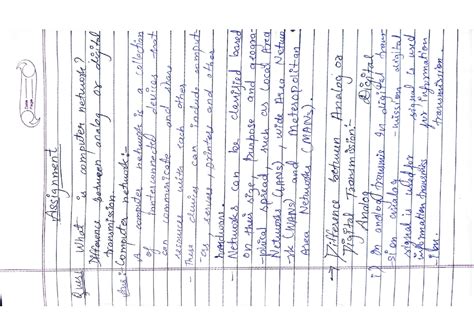 Assignment
Ques: What is computer network?
Difference between analog or digital
transmission
Ans:- Computer network:-
A computer network is a collection
of interconnected devices that
can communicate and share
resources with each other
- These devices can include comput-
-ers, servers, printers and other
hardware.
- Networks can be classified based
on their size, purpose and geogra-
-phical spread, such as Local Area
Networks (LANs), Wide Area Netwo-
-rk (WANs) and Meteropolitan
Area Networks (MANs).
→ Difference between Analog or
Digital Transmission:-
Analog
i) In analog transmis-
-sion analog
signal is used for
information transmis-
-ion.
Digital
In digital trans-
-mission digital
signal is used
for information
transmission.